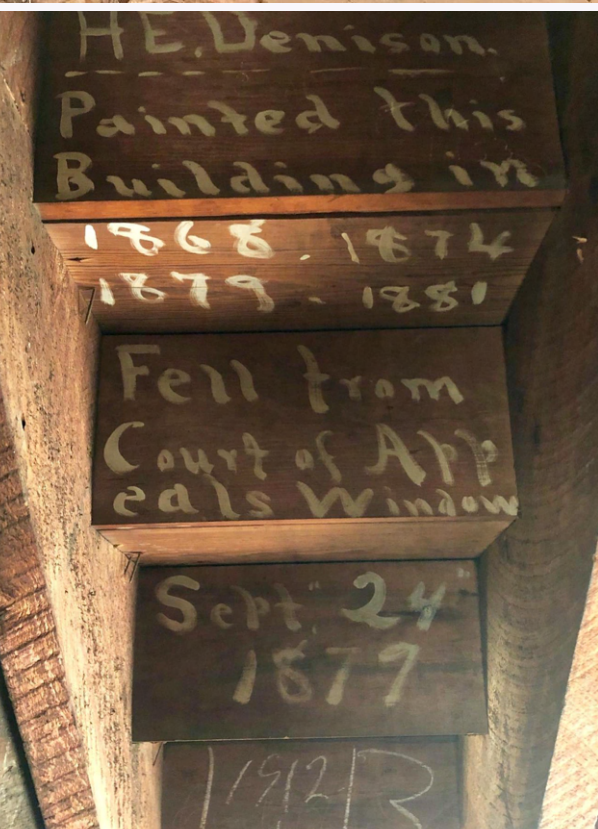 H.E. Denison.
Painted this
Building in
1868. 1874
1879. 1881
Fell from
Court of App
eals Window
Sept. 24"
1879
1912 R